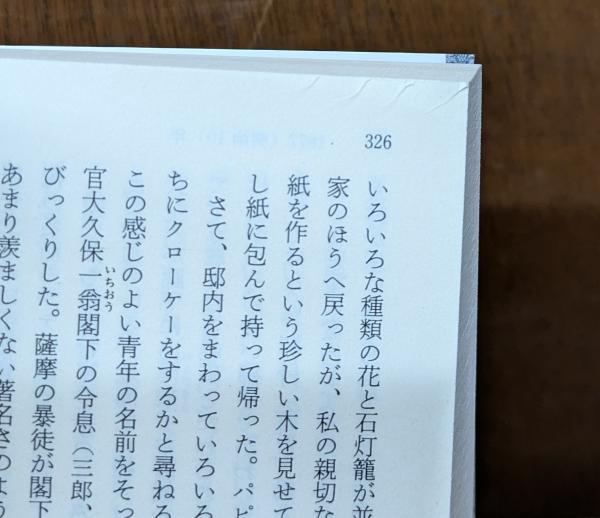 326
いろいろな種類の花と石灯籠が並
家のほうへ戻ったが、私の親切な
紙を作るという珍しい木を見せて
し紙に包んで持って帰った。パピ
さて、邸内をまわっていろいろ
ちにクローケーをするかと尋ねろ
この感じのよい青年の名前をそっ
官大久保一翁閣下の令息（三郎、
いちおう
びっくりした。薩摩の暴徒が閣下
あまり羨ましくない著名さのよう